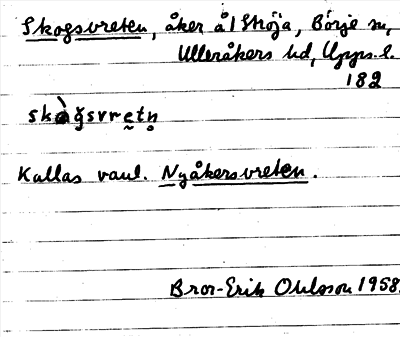 Skogsvreten, åker å l Ströja, Börje sn,
Ulleråkers hd, Upps. l.
182
skàǧsvrętn̥
Kallas vanl. Nyåkersvreten.
Bror-Erik Ohlsson 1958.